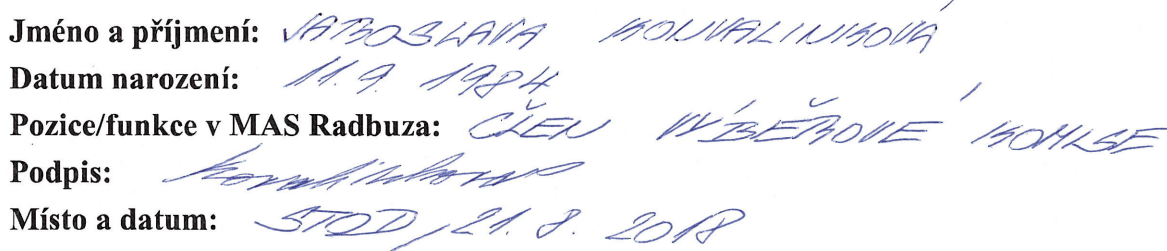 Jméno a příjmení: JAROSLAVA KONVALINKOVÁ
Datum narození: 11. 9. 1984
Pozice/funkce v MAS Radbuza: ČLEN VÝBĚROVÉ KOMISE
Podpis: Konvalinková
Místo a datum: STOD, 21. 8. 2018